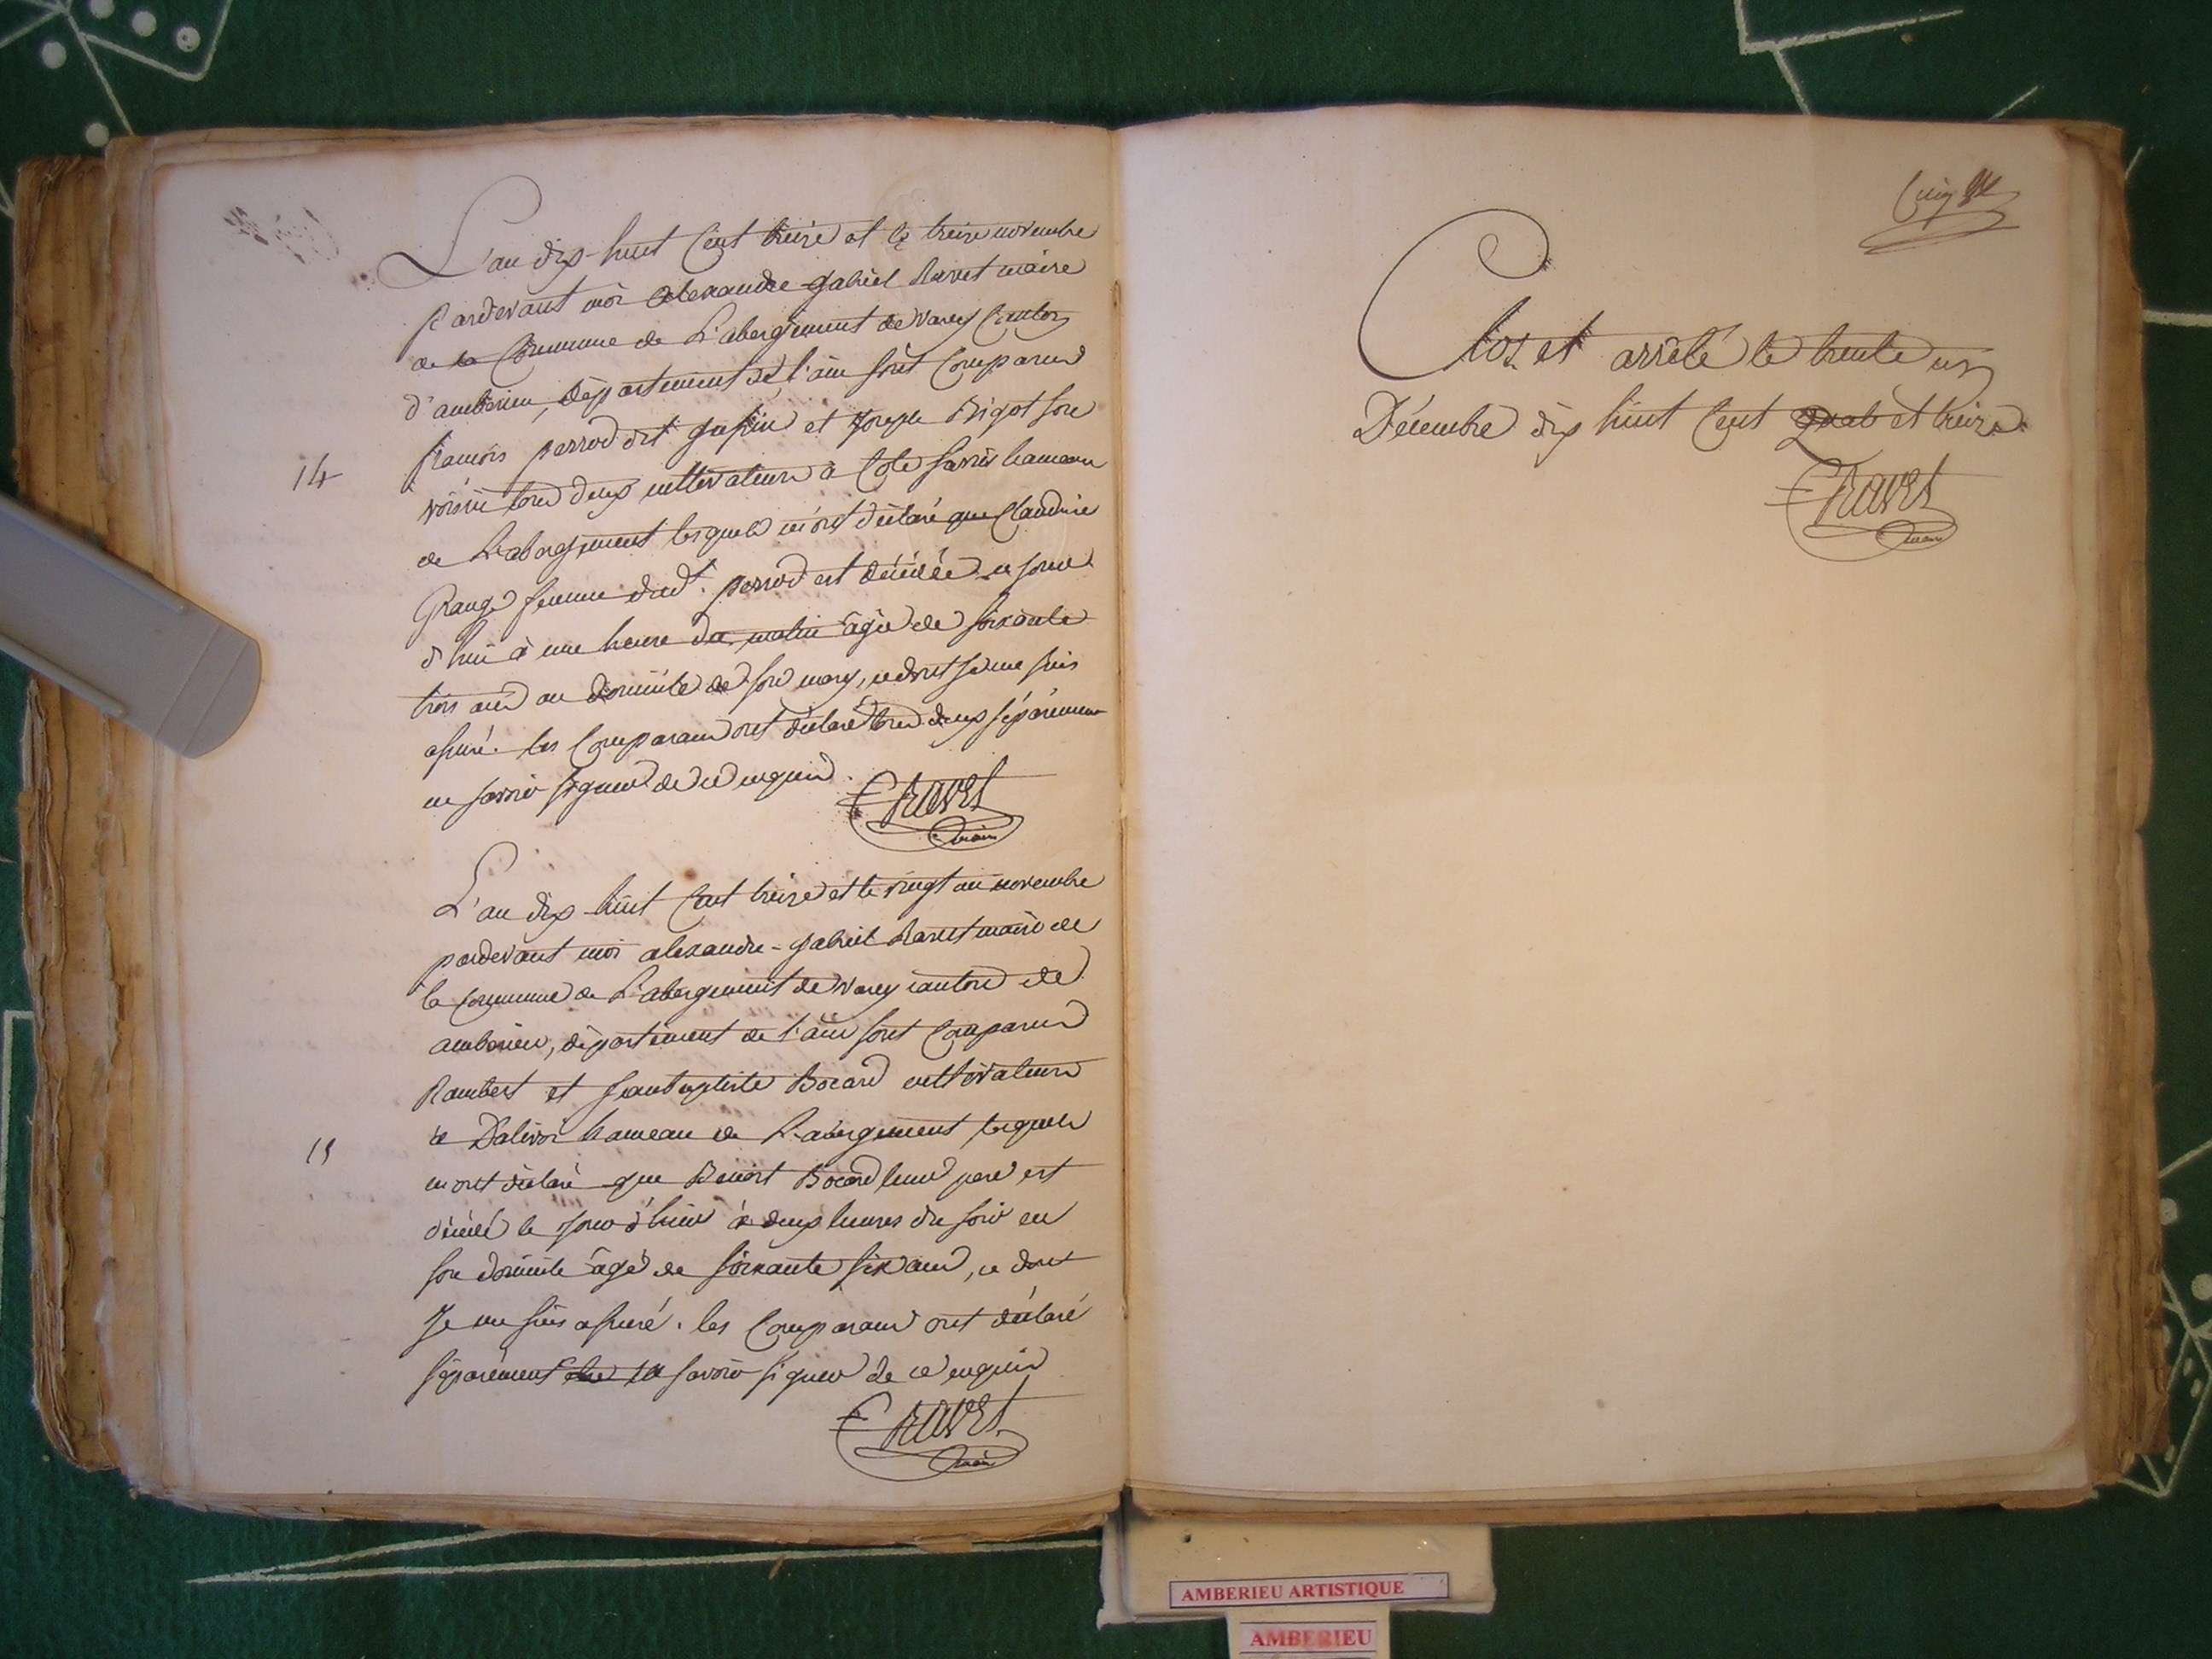 L'an dix-huit Cent treize et le treize novembre
pardevant moi alexandre-gabriel Ravet maire
de la Commune de L'abergement de varey Canton
d'amberieu, département de l'ain sont Comparus
françois perrod dit et Joseph Bigot son
14
voisin tous deux cultivateurs à Côte savin hameau
de L'abergement lesquels m'ont déclaré que Claudine
Grange femme dud.t perrod est décédée ce jour
d'hui à une heure du matin âgée de soixante
trois ans au domicile de son mary, ce dont je me suis
assuré. les Comparans ont déclaré tous deux séparément
ne savoir signer de ce enquis.
Ravet
maire
L'an dix-huit Cent treize et le vingt un novembre
pardevant moi alexandre-gabriel Ravet maire de
la Commune de L'abergement de varey canton de
amberieu, département de l'ain sont Comparus
Rambert et Jeanbaptiste Bocard cultivateurs
à Dalivoi hameau de L'abergement lesquels
15
m'ont déclaré que Benoit Bocard leur pere est
décédé le jour d'hier à deux heures du soir en
son domicile âgé de soixante six ans, ce dont
Je me suis assuré. les Comparans ont déclaré
séparément ne savoir signer de ce enquis
Ravet
maire
Clos et arrêté le trente un
Décembre dix huit Cent et treize.
Ravet
maire
AMBERIEU ARTISTIQUE
AMBERIEU